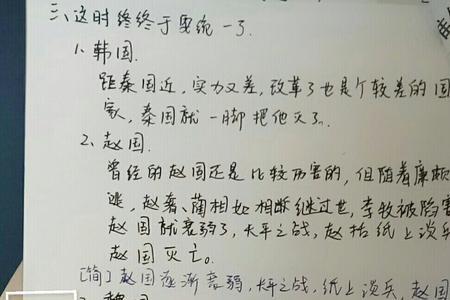 三、这时终终于要统一了.
1. 韩国.
距秦国近，实力又差，改革了也是个较差的国
家，秦国就一脚把他灭了.
2. 赵国.
曾经的赵国还是比较厉害的，但随着廉颇
逃，赵奢、蔺相如相断继过世，李牧被陷害
赵国就衰弱了，长平之战，赵括纸上谈兵
赵国灭亡。
[简] 赵国逐渐衰弱，长平之战，纸上谈兵，赵国